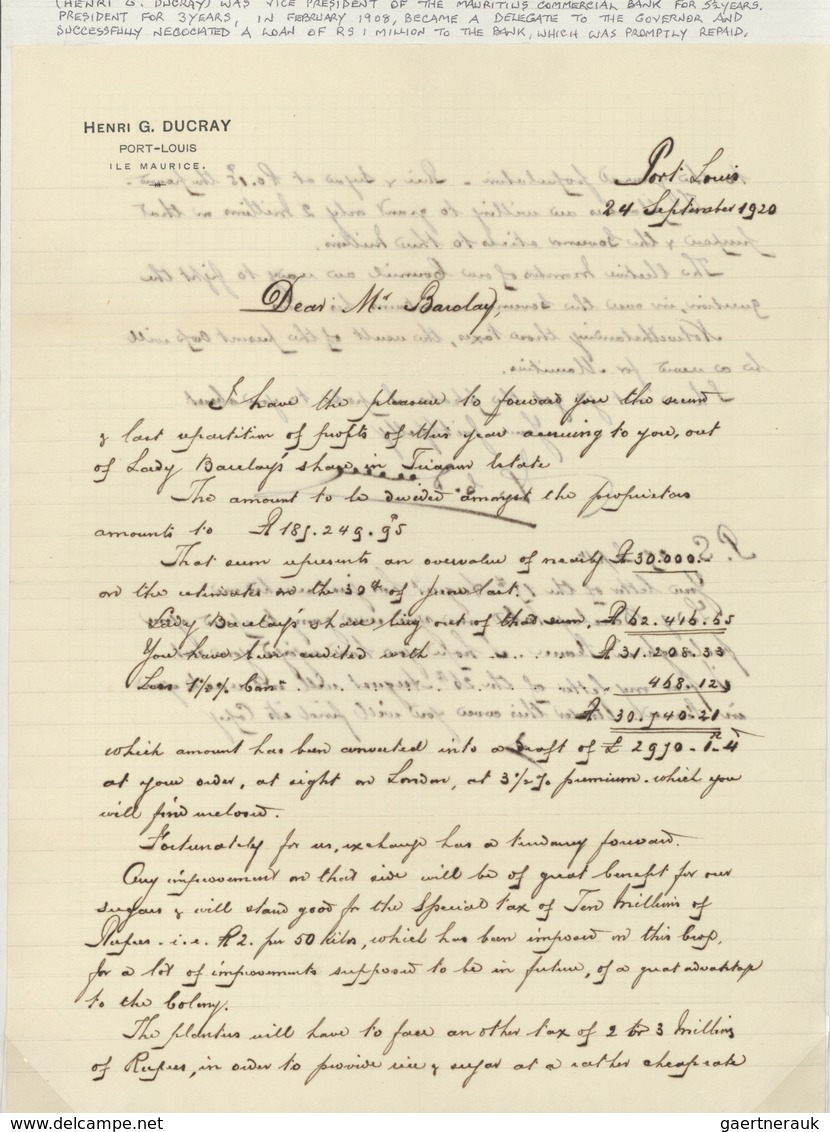 (HENRI G. DUCRAY) WAS VICE PRESIDENT OF THE MAURITIUS COMMERCIAL BANK FOR 5½ YEARS.
PRESIDENT FOR 3 YEARS, IN FEBRUARY 1908, BECAME A DELEGATE TO THE GOVERNOR AND
SUCCESSFULLY NEGOCIATED A LOAN OF RS 1 MILLION TO THE BANK, WHICH WAS PROMPTLY REPAID.
HENRI G. DUCRAY
PORT-LOUIS
ILE MAURICE.
Port Louis
24 September 1920
Dear Mr Barclay,
I have the pleasure to forward you the second
& last repartition of profits of this year accruing to you, out
of Lady Barclay's share in Estate
The amount to be divided amongst the proprietors
amounts to R 185.249.95
That sum represents an overvalue of nearly R 30.000.-
on the estimates on the 30th of June last.
Lady Barclay's share being out of that sum, R 62.416.65
You have been credited with R 31.208.33
Less 1½% Comn. 468.12
R 30.740.21
which amount has been converted into a draft of £ 2970-1-4
at your order, at sight on London, at 3½% premium. which you
will find inclosed.
Fortunately for us, exchange has a tendancy forward.
Any improvement on that side will be of great benefit for our
sugars & will stand good for the Special tax of Ten Millions of
Rupees. i.e. R2. per 50 kilos, which has been imposed on this Crop,
for a lot of improvements supposed to be in future, of a great advantage
to the Colony.
The planters will have to face an other tax of 2 to 3 Millions
of Rupees, in order to provide rice & sugar at a rather cheap rate
gaertnerauk